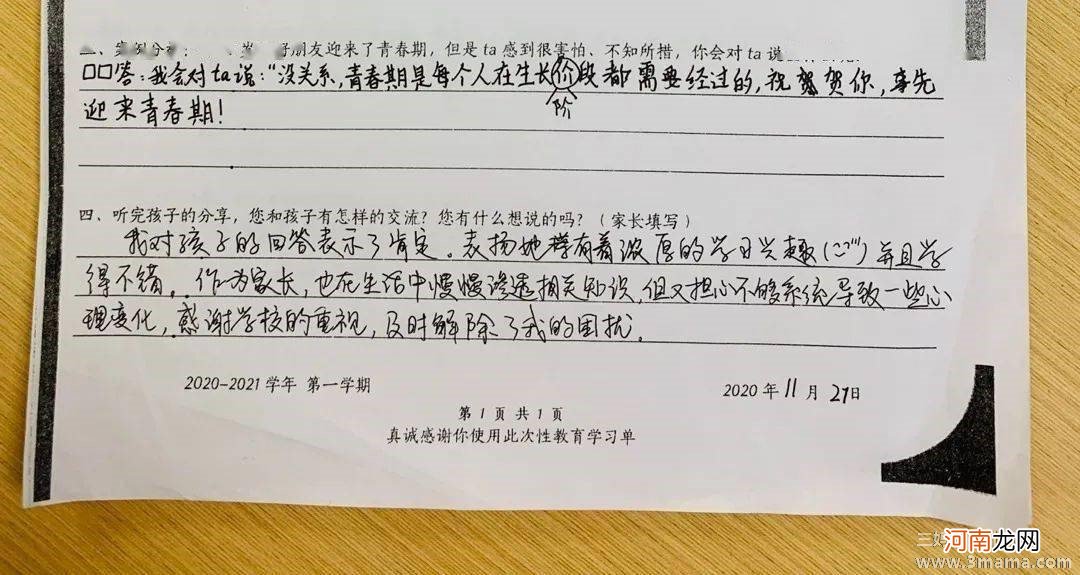 好朋友迎来了青春期，但是 ta 感到很害怕、不知所措，你会对 ta 说
□□答：我会对ta说："没关系，青春期是每个人在生长阶段都需要经过的，祝贺你，率先
阶
迎来青春期！
四、听完孩子的分享，您和孩子有怎样的交流？您有什么想说的吗？（家长填写）
我对孩子的回答表示了肯定。表扬她有着浓厚的学习兴趣 并且学
得不错。作为家长，也在生活中慢慢渗透相关知识，但又担心不够系统导致一些心
理变化，感谢学校的重视，及时解除了我的困扰。
2020-2021 学年 第一学期
2020 年 11 月 29日
第 1 页 共 1 页
真诚感谢你使用此次性教育学习单
河南龙网
www.3mama.com